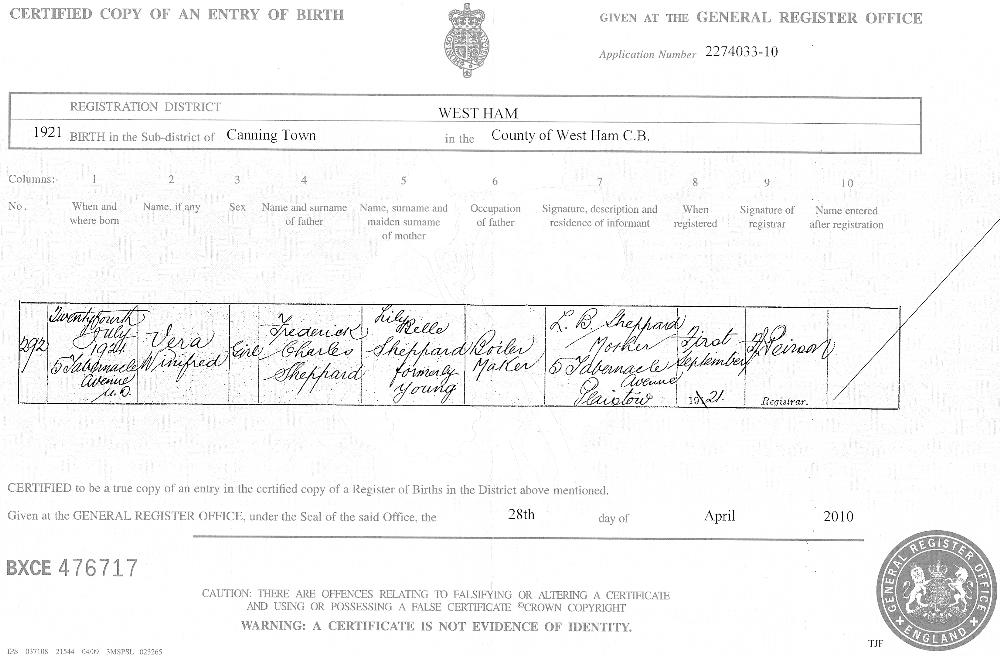 CERTIFIED COPY OF AN ENTRY OF BIRTH
GIVEN AT THE GENERAL REGISTER OFFICE
Application Number 2274033-10
REGISTRATION DISTRICT WEST HAM
1921 BIRTH in the Sub-district of Canning Town in the County of West Ham C.B.
Columns: 1 2 3 4 5 6 7 8 9 10
No. When and where born
Name, if any
Sex
Name and surname of father
Name, surname and maiden surname of mother
Occupation of father
Signature, description and residence of informant
When registered
Signature of registrar
Name entered after registration
292
Twentyfourth
July
1921
5 Tabernacle
Avenue
U.D.
Vera
Winifred
Girl
Frederick
Charles
Sheppard
Lily
Belle
Sheppard
formerly
Young
Boiler
Maker
L. B. Sheppard
Mother
5 Tabernacle
Avenue
Plaistow
First
September
1921.
Peirson
Registrar.
CERTIFIED to be a true copy of an entry in the certified copy of a Register of Births in the District above mentioned.
Given at the GENERAL REGISTER OFFICE, under the Seal of the said Office, the 28th day of April 2010
BXCE 476717
CAUTION: THERE ARE OFFENCES RELATING TO FALSIFYING OR ALTERING A CERTIFICATE
AND USING OR POSSESSING A FALSE CERTIFICATE ©CROWN COPYRIGHT
WARNING: A CERTIFICATE IS NOT EVIDENCE OF IDENTITY.
GENERAL REGISTER OFFICE
ENGLAND
TJF
21544 04/09 3MSPSL 025265